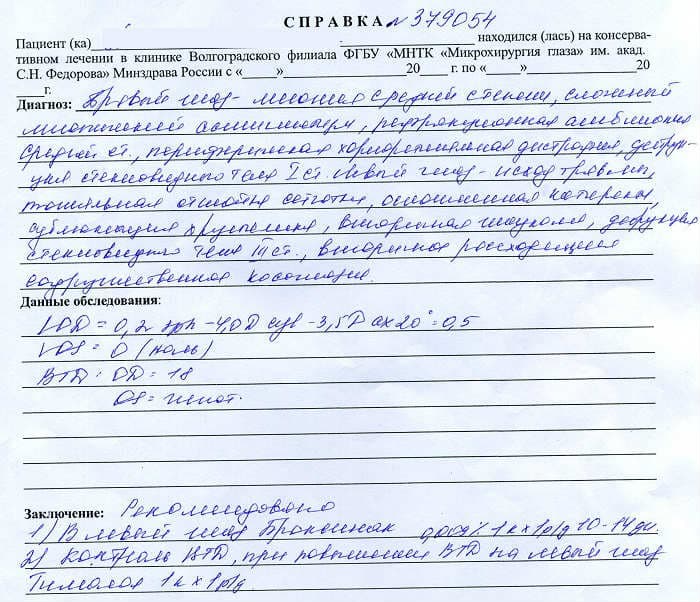 СПРАВКА №379054
Пациент (ка) находился (лась) на консерва-
тивном лечении в клинике Волгоградского филиала ФГБУ «МНТК «Микрохирургия глаза» им. акад.
С.Н. Федорова» Минздрава России с «____»____________20____ г. по «____»____________20
____г.
Диагноз: Правый глаз - миопия средней степени, сложный
миопический астигматизм, рефракционная амблиопия
средней ст., периферическая хориоретинальная дистрофия, деструк-
ция стекловидного тела I ст. Левый глаз - исход травмы,
тотальная отслойка сетчатки, осложненная катаракта,
сублюксация хрусталика, вторичная глаукома, деструкция
стекловидного тела III ст., вторичное расходящееся
содружественное косоглазие.
Данные обследования:
VOD = 0,2 sph -4,0D cyl -3,5D ax 20° = 0,5
VOS = 0 (ноль)
ВГД: OD = 18
OS = гипот.
Заключение: Рекомендовано
1) В левый глаз Броксинак 0,09% 1к x 1р/д 10-14 дн.
2) Контроль ВГД, при повышении ВГД на левый глаз
Тимолол 1к x 1р/д